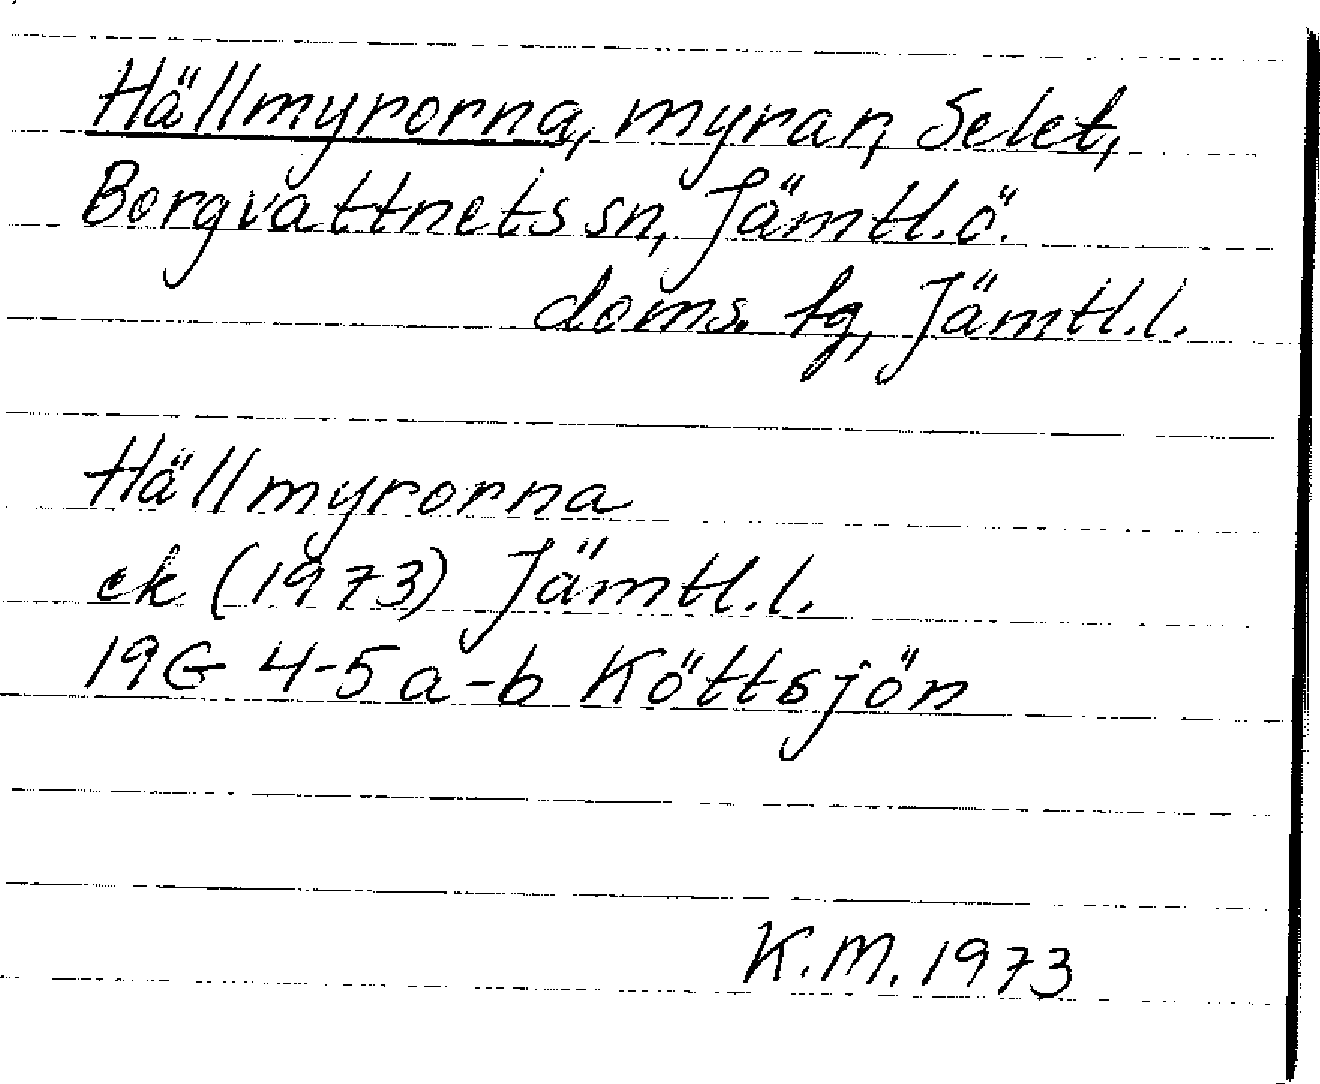 Hällmyrorna, myrar, Selet,
Borgvattnets sn, Jämtl.ö.
doms. tg, Jämtl.l.
Hällmyrorna
ek (1973) Jämtl.l.
19G 4-5a-b Köttsjön
K.M. 1973